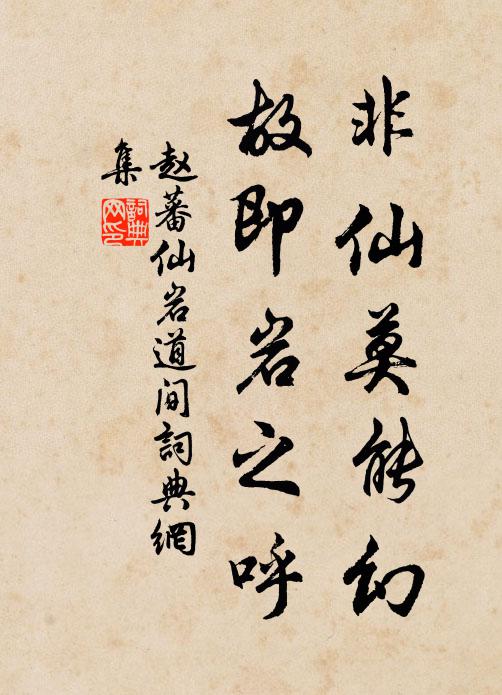 非仙莫能幻
故即岩之呼
赵蕃仙岩道间詞典網
集
詞典网印